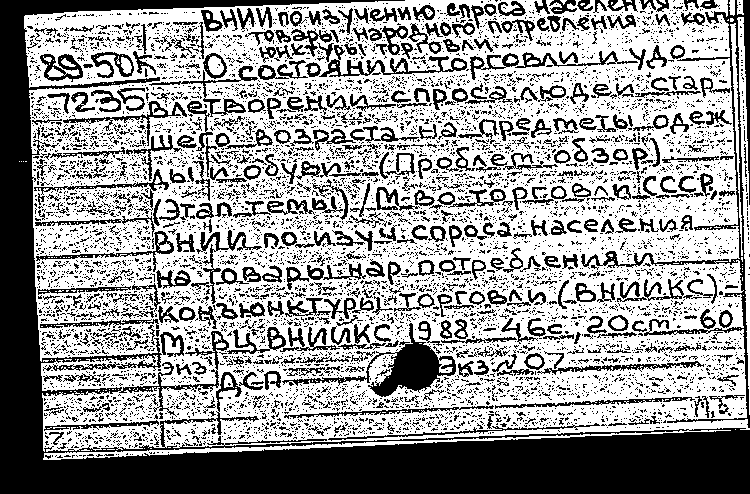 ВНИИ по изучению спроса населения на
товары народного потребления и конъ-
юнктуры торговли.
89-50к О состоянии торговли и удо-
7235 влетворении спроса людей стар-
шего возраста на предметы одеж
ды и обуви. (Проблем. обзор)
(Этап темы) / М-во торговли СССР,
ВНИИ по изуч. спроса населения
на товары нар. потребления и
конъюнктуры торговли (ВНИИКС).-
М.: ВЦ ВНИИКС, 1988 - 46с.; 20см - 60
экз. Экз. N 07
ДСП